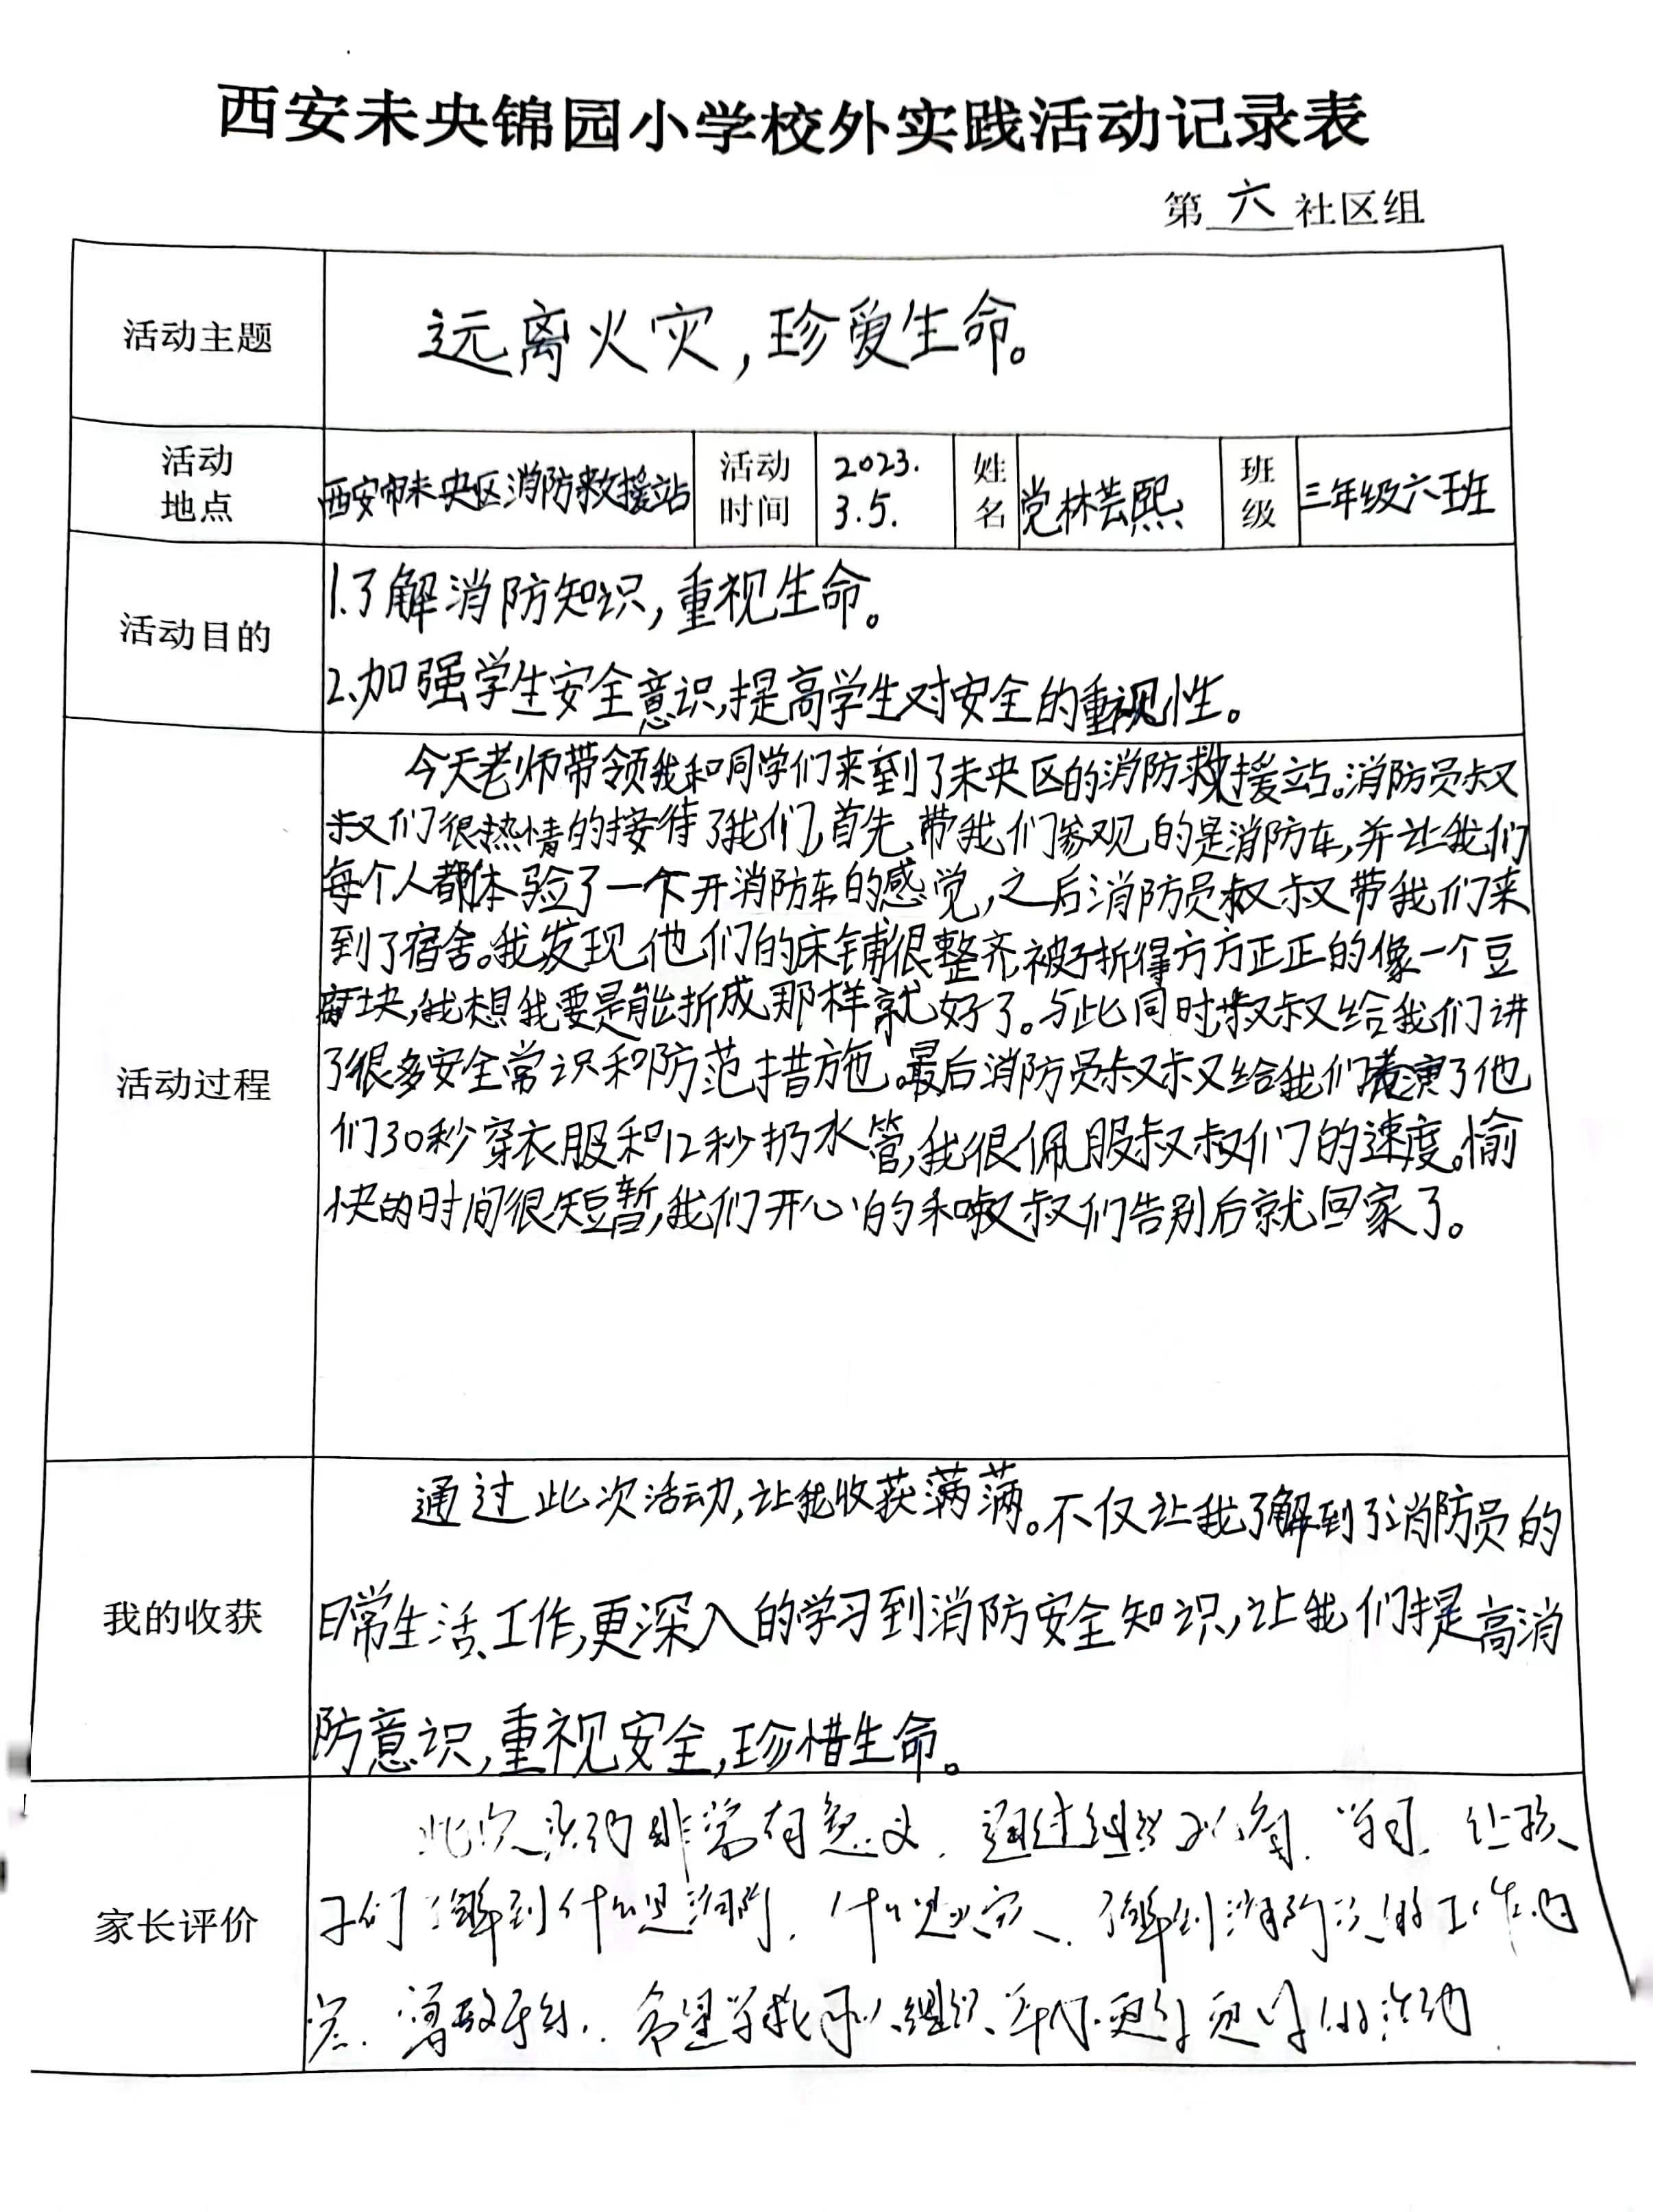 西安未央锦园小学校外实践活动记录表
第六社区组
活动主题
远离火灾，珍爱生命。
活动地点
西安市未央区消防救援站
活动时间
2023.
3.5.
姓名
党林芸熙
班级
三年级六班
活动目的
1.了解消防知识，重视生命。
2.加强学生安全意识，提高学生对安全的重视性。
活动过程
今天老师带领我和同学们来到了未央区的消防救援站。消防员叔
叔们很热情的接待了我们，首先，带我们参观的是消防车，并让我们
每个人都体验了一下开消防车的感觉，之后消防员叔叔带我们来
到了宿舍。我发现他们的床铺很整齐，被子折得方方正正的像一个豆
腐块，我想我要是能折成那样就好了。与此同时，叔叔给我们讲
了很多安全常识和防范措施。最后消防员叔叔给我们表演了他
们30秒穿衣服和12秒扔水管，我很佩服叔叔们的速度。愉
快的时间很短暂，我们开心的和叔叔们告别后就回家了。
我的收获
通过此次活动，让我收获满满。不仅让我了解到了消防员的
日常生活、工作，更深入的学习到消防安全知识，让我们提高消
防意识，重视安全，珍惜生命。
家长评价
此次活动非常有意义，通过组织 学习，让孩
子们了解到什么是消防，什么是火灾，了解到消防员的工作内
容， 希望学校可以组织 更多更好的活动